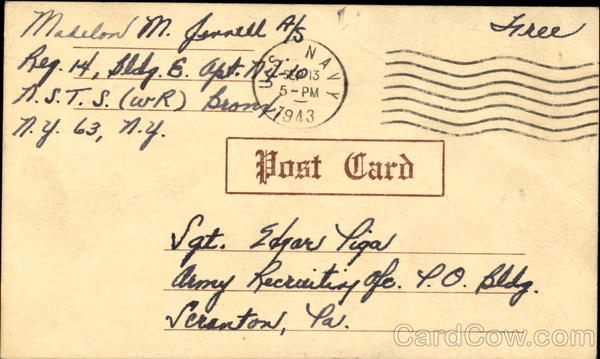 Madelon M. Jennell A/S
Free
Reg. 14, Bldg. E. Apt. N7-10
N.S.T.S. (WR) Bronx,
N.Y. 63, N.Y.
U.S. NAVY
SEP 13
5-PM
1943
Post Card
Sgt. Edgar Piga
Army Recruiting Ofc. P.O. Bldg.
Scranton, Pa.
CardCow.com